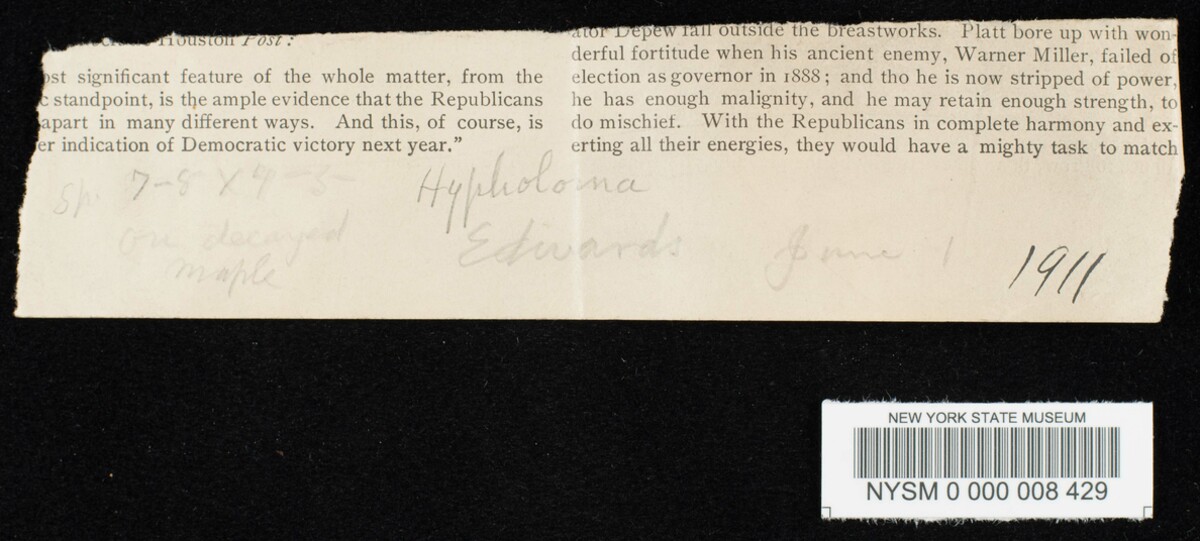 Houston Post:
ost significant feature of the whole matter, from the
c standpoint, is the ample evidence that the Republicans
apart in many different ways. And this, of course, is
er indication of Democratic victory next year.”
ator Depew fall outside the breastworks. Platt bore up with won-
derful fortitude when his ancient enemy, Warner Miller, failed of
election as governor in 1888; and tho he is now stripped of power,
he has enough malignity, and he may retain enough strength, to
do mischief. With the Republicans in complete harmony and ex-
erting all their energies, they would have a mighty task to match
Sp. 7-8 X 4-5 Hypholoma
on decayed Edwards June 1 1911
maple
NEW YORK STATE MUSEUM
NYSM 0 000 008 429